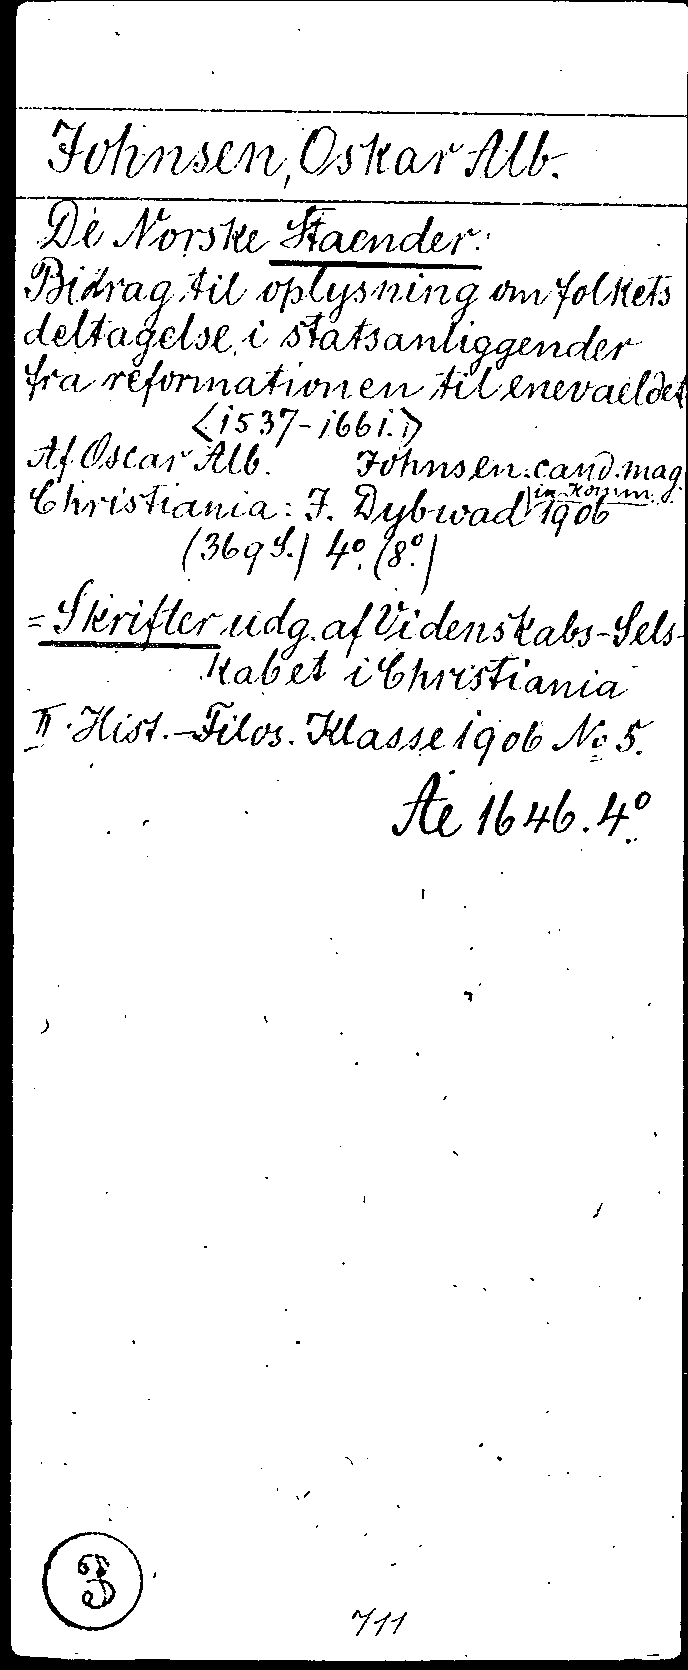 Johnsen, Oskar Alb.
De Norske Staender.
Bidrag til oplysning om folkets
deltagelse i statsanliggender
fra reformationen til enevaeldet
<1537-1661.>
Af Oscar Alb. Johnsen. cand. mag.
in Komm.
Christiania: J. Dybwad 1906
(369 S.) 4º. (8º.)
= Skrifter udg. af Videnskabs-Sels-
kabet i Christiania
II. Hist.-Filos. Klasse 1906 No 5.
Ae 1646. 4º
3
711